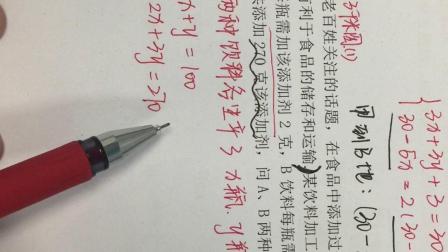 3x+3y+3=30
30-5x=2(30-
甲到B地：(30-
老百姓关注的话题，在食品中添加过
有利于食品的储存和运输，某饮料加工
瓶需加该添加剂 2 克，B 饮料每瓶需
共添加 270 克该添加剂，问 A、B 两种
两种饮料各生产了x瓶，y瓶
x+y=100
2x+3y=270